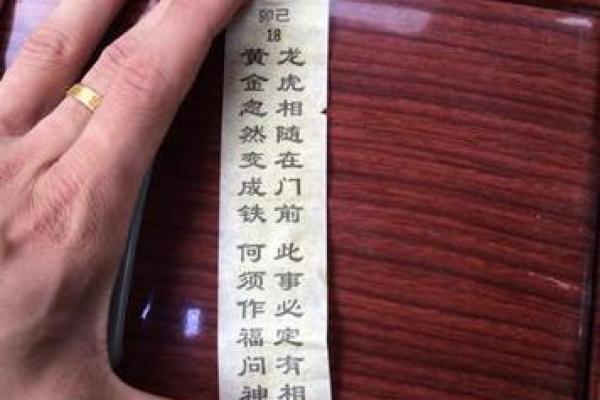 卯己
18
龙虎相随在门前 此事必定有相
黄金忽然变成铁 何须作福问神